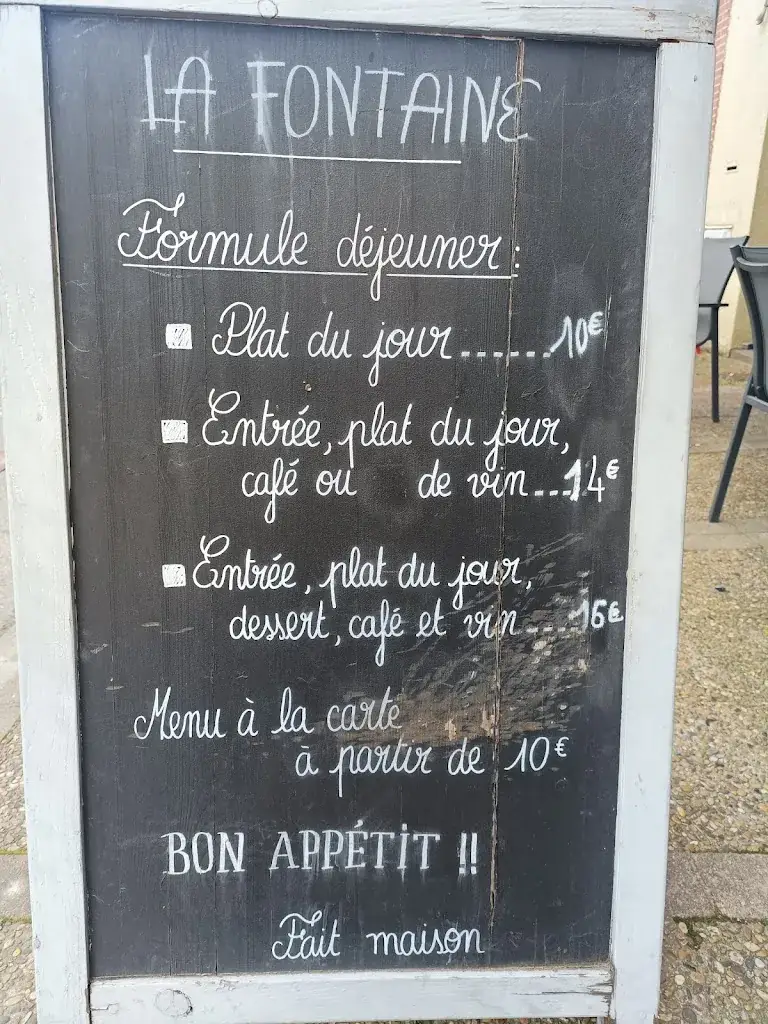 LA FONTAINE
Formule déjeuner :
Plat du jour.......10€
Entrée, plat du jour,
café ou de vin...14€
Entrée, plat du jour,
dessert, café et vin....16€
Menu à la carte
à partir de 10€
BON APPÉTIT !!
Fait maison